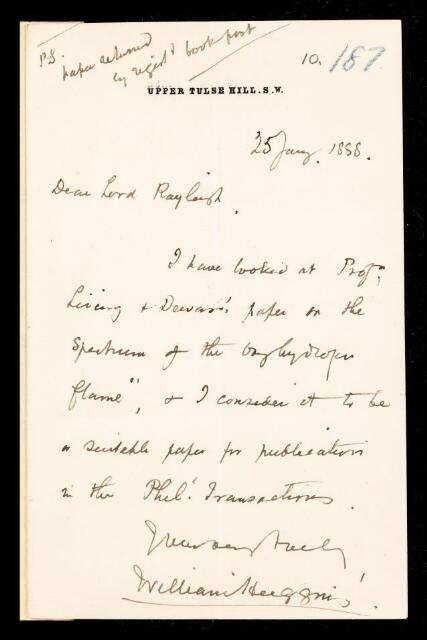 P.S.
paper returned
by regist'd book post
10. 187
UPPER TULSE HILL. S.W.
25 Jany. 1888.
Dear Lord Rayleigh,
I have looked at Profs.
Living & Dewar's paper on the
Spectrum of the Oxyhydrogen
flame", & I consider it to be
a suitable paper for publication
in the Phil. Transactions.
Yours very truly
William Huggins.